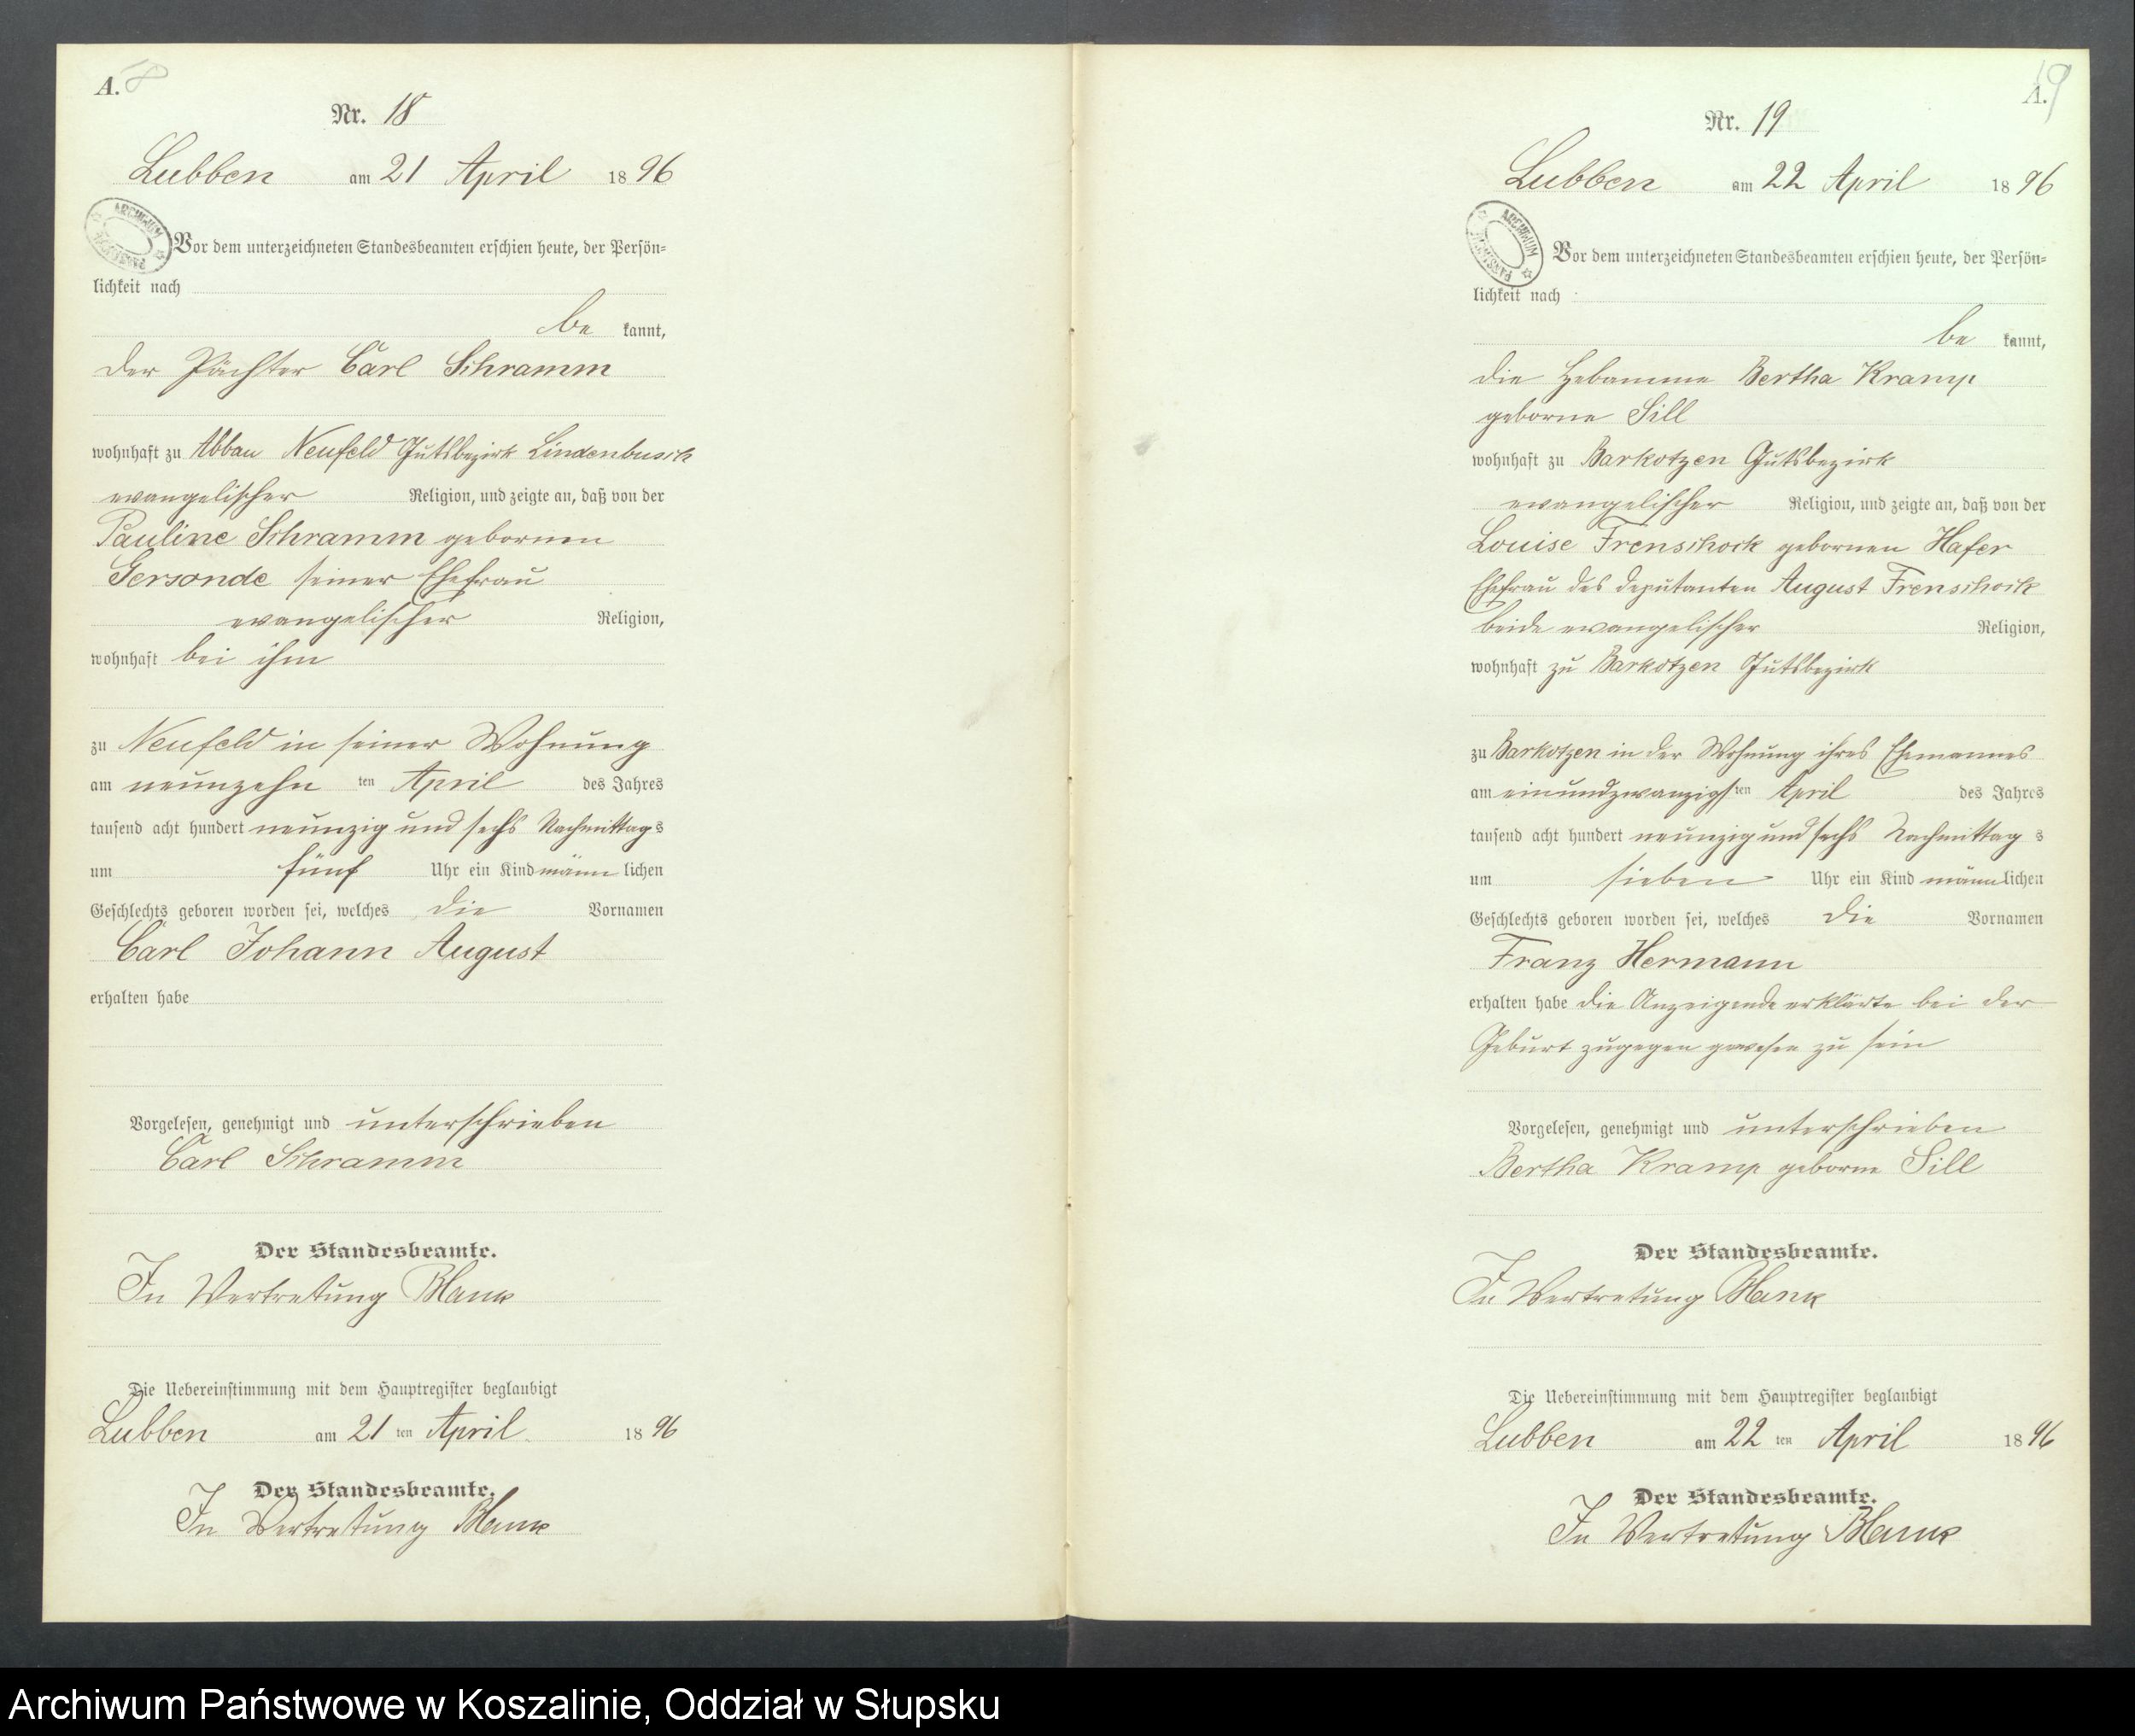 A. 18
Nr. 18
Lubben am 21 April 1896
ARCHIWUM PAŃSTWOWE
Vor dem unterzeichneten Standesbeamten erschien heute, der Persön-
lichkeit nach
be kannt,
der Pächter Carl Schramm
wohnhaft zu Abbau Neufeld Gutsbezirk Lindenbusch
evangelischer Religion, und zeigte an, daß von der
Pauline Schramm gebornen
Gersonde seiner Ehefrau
evangelischer Religion,
wohnhaft bei ihm
zu Neufeld in seiner Wohnung
am neunzehn ten April des Jahres
tausend acht hundert neunzig und sechs Nachmittags
um fünf Uhr ein Kind männ lichen
Geschlechts geboren worden sei, welches die Vornamen
Carl Johann August
erhalten habe
Vorgelesen, genehmigt und unterschrieben
Carl Schramm
Der Standesbeamte.
In Vertretung Blank
Die Uebereinstimmung mit dem Hauptregister beglaubigt
Lubben am 21 ten April 1896
Der Standesbeamte.
In Vertretung Blank
19
A.
Nr. 19
Lubben am 22 April 1896
ARCHIWUM PAŃSTWOWE
Vor dem unterzeichneten Standesbeamten erschien heute, der Persön-
lichkeit nach
be kannt,
die Hebamme Bertha Kramp
geborne Sill
wohnhaft zu Barkotzen Gutsbezirk
evangelischer Religion, und zeigte an, daß von der
Louise Frenschock gebornen Hafer
Ehefrau des Deputanten August Frenschock
beide evangelischer Religion,
wohnhaft zu Barkotzen Gutsbezirk
zu Barkotzen in der Wohnung ihres Ehemannes
am einundzwanzigsten April des Jahres
tausend acht hundert neunzig und sechs Nachmittag s
um sieben Uhr ein Kind männlichen
Geschlechts geboren worden sei, welches die Vornamen
Franz Hermann
erhalten habe die Anzeigende erklärte bei der
Geburt zugegen gewesen zu sein
Vorgelesen, genehmigt und unterschrieben
Bertha Kramp geborne Sill
Der Standesbeamte.
In Vertretung Blank
Die Uebereinstimmung mit dem Hauptregister beglaubigt
Lubben am 22 ten April 1896
Der Standesbeamte.
In Vertretung Blank
Archiwum Państwowe w Koszalinie, Oddział w Słupsku